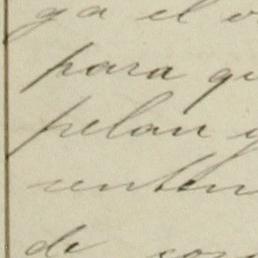 ga el v
para qu
pelan y
senten
de con